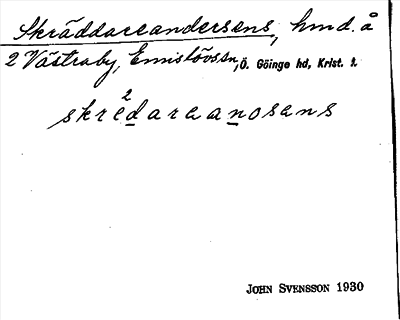 Skräddareandersens, hmd. å
2 Västraby, Emislövssn, Ö. Göinge hd, Krist. l.
2
skredareanosens
JOHN SVENSSON 1930